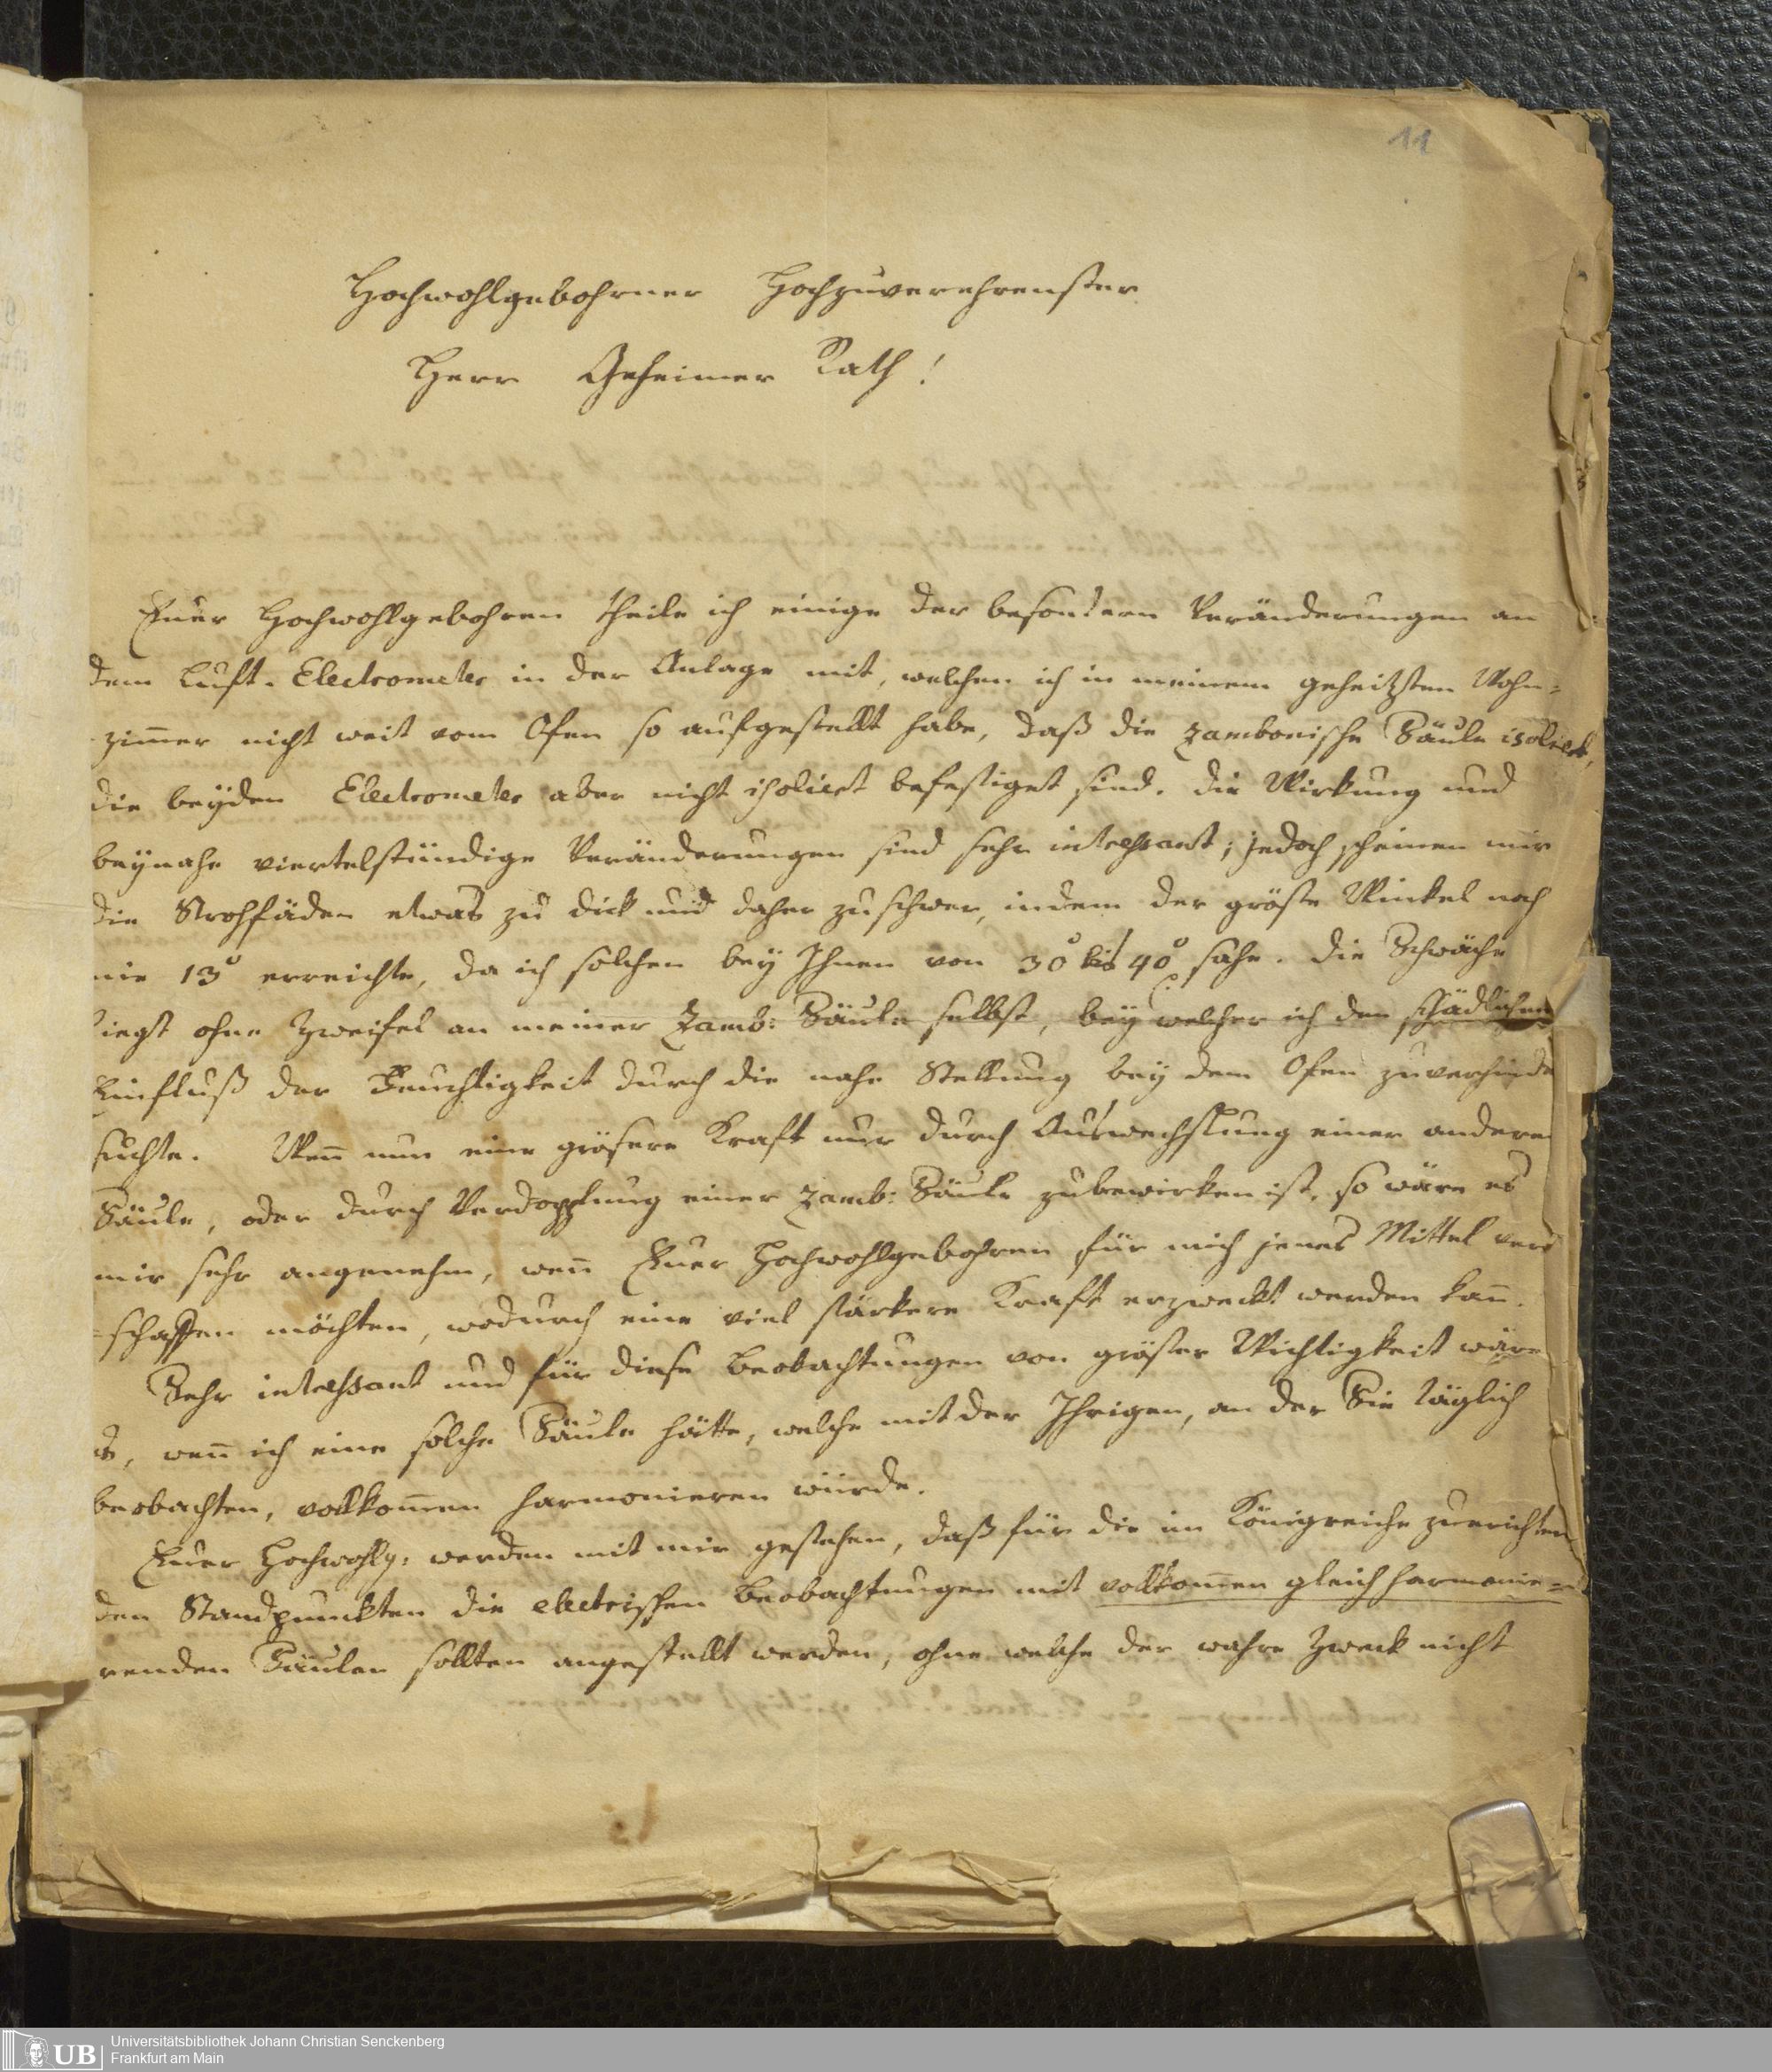 11
Hochwohlgebohrner Hochzuverehrenster
Herr Geheimer Rath!
Euer Hochwohlgebohren theile ich einige der besondern Veränderungen an
dem Luft-Electrometer in der Anlage mit, welchen ich in meinem geheitzten Wohn=
zim̅er nicht weit vom Ofen so aufgestellt habe, daß die zambonische Säule isoliert,
die beÿden Electrometer aber nicht isoliert befestiget sind. Die Wirkung und
beÿnahe viertelstündige Veränderungen sind sehr interessant; jedoch scheinen mir
die Strohfäden etwas zu dick und daher zu schwer, indem der größte Winkel noch
nie 13° erreichte, da ich solchen beÿ Ihnen von 30° bis 40° sahe. Die Schwäche
liegt ohne Zweifel an meiner Zamb: Säule selbst, beÿ welcher ich den schädlichen
Einfluß der Feuchtigkeit durch die nahe Stellung beÿ dem Ofen zuverhinde
suchte. Wen̅ nun eine grösere Kraft nur durch Auswechslung einer andere
Säule, oder durch Verdopplung einer Zamb: Säule zubewirken ist, so wäre es
mir sehr angenehm, wen̅ Euer Hochwohlgebohren für mich jenes Mittel ver
=schaffen möchten, wodurch eine viel stärkere Kraft erzweckt werden kan̅.
Sehr interessant und für diese Beobachtungen von gröster Wichtigkeit wäre
es, wen̅ ich eine solche Säule hätte, welche mit der Ihrigen, an der Sie täglich
beobachten, vollkom̅en harmonieren würde.
Euer Hochwohlg: werden mit mir gestehen, daß für die im Königreiche zuerichten
den Standpunkten die electrischen Beobachtungen mit vollkom̅en gleich harmonie=
renden Säulen sollten angestellt werden, ohne welche der wahre Zweck nicht
UB
Universitätsbibliothek Johann Christian Senckenberg
Frankfurt am Main